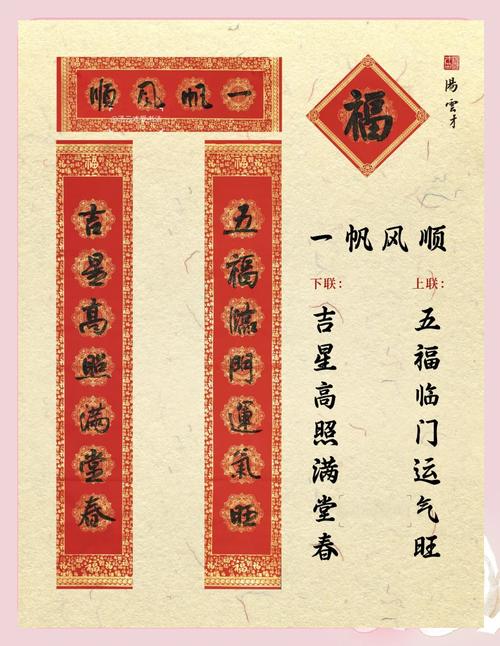 順風帆一
五福臨門運氣旺
吉星高照满堂春
福
湯雲才
一帆风顺
上联：
五福临门运气旺
下联：
吉星高照满堂春